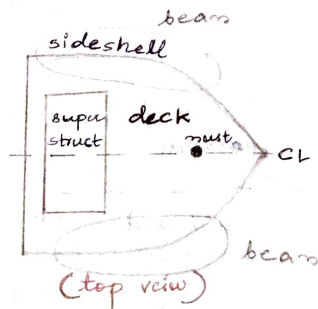 bean
sideshell
super
struct
deck
mast
CL
bean
(top veiw)